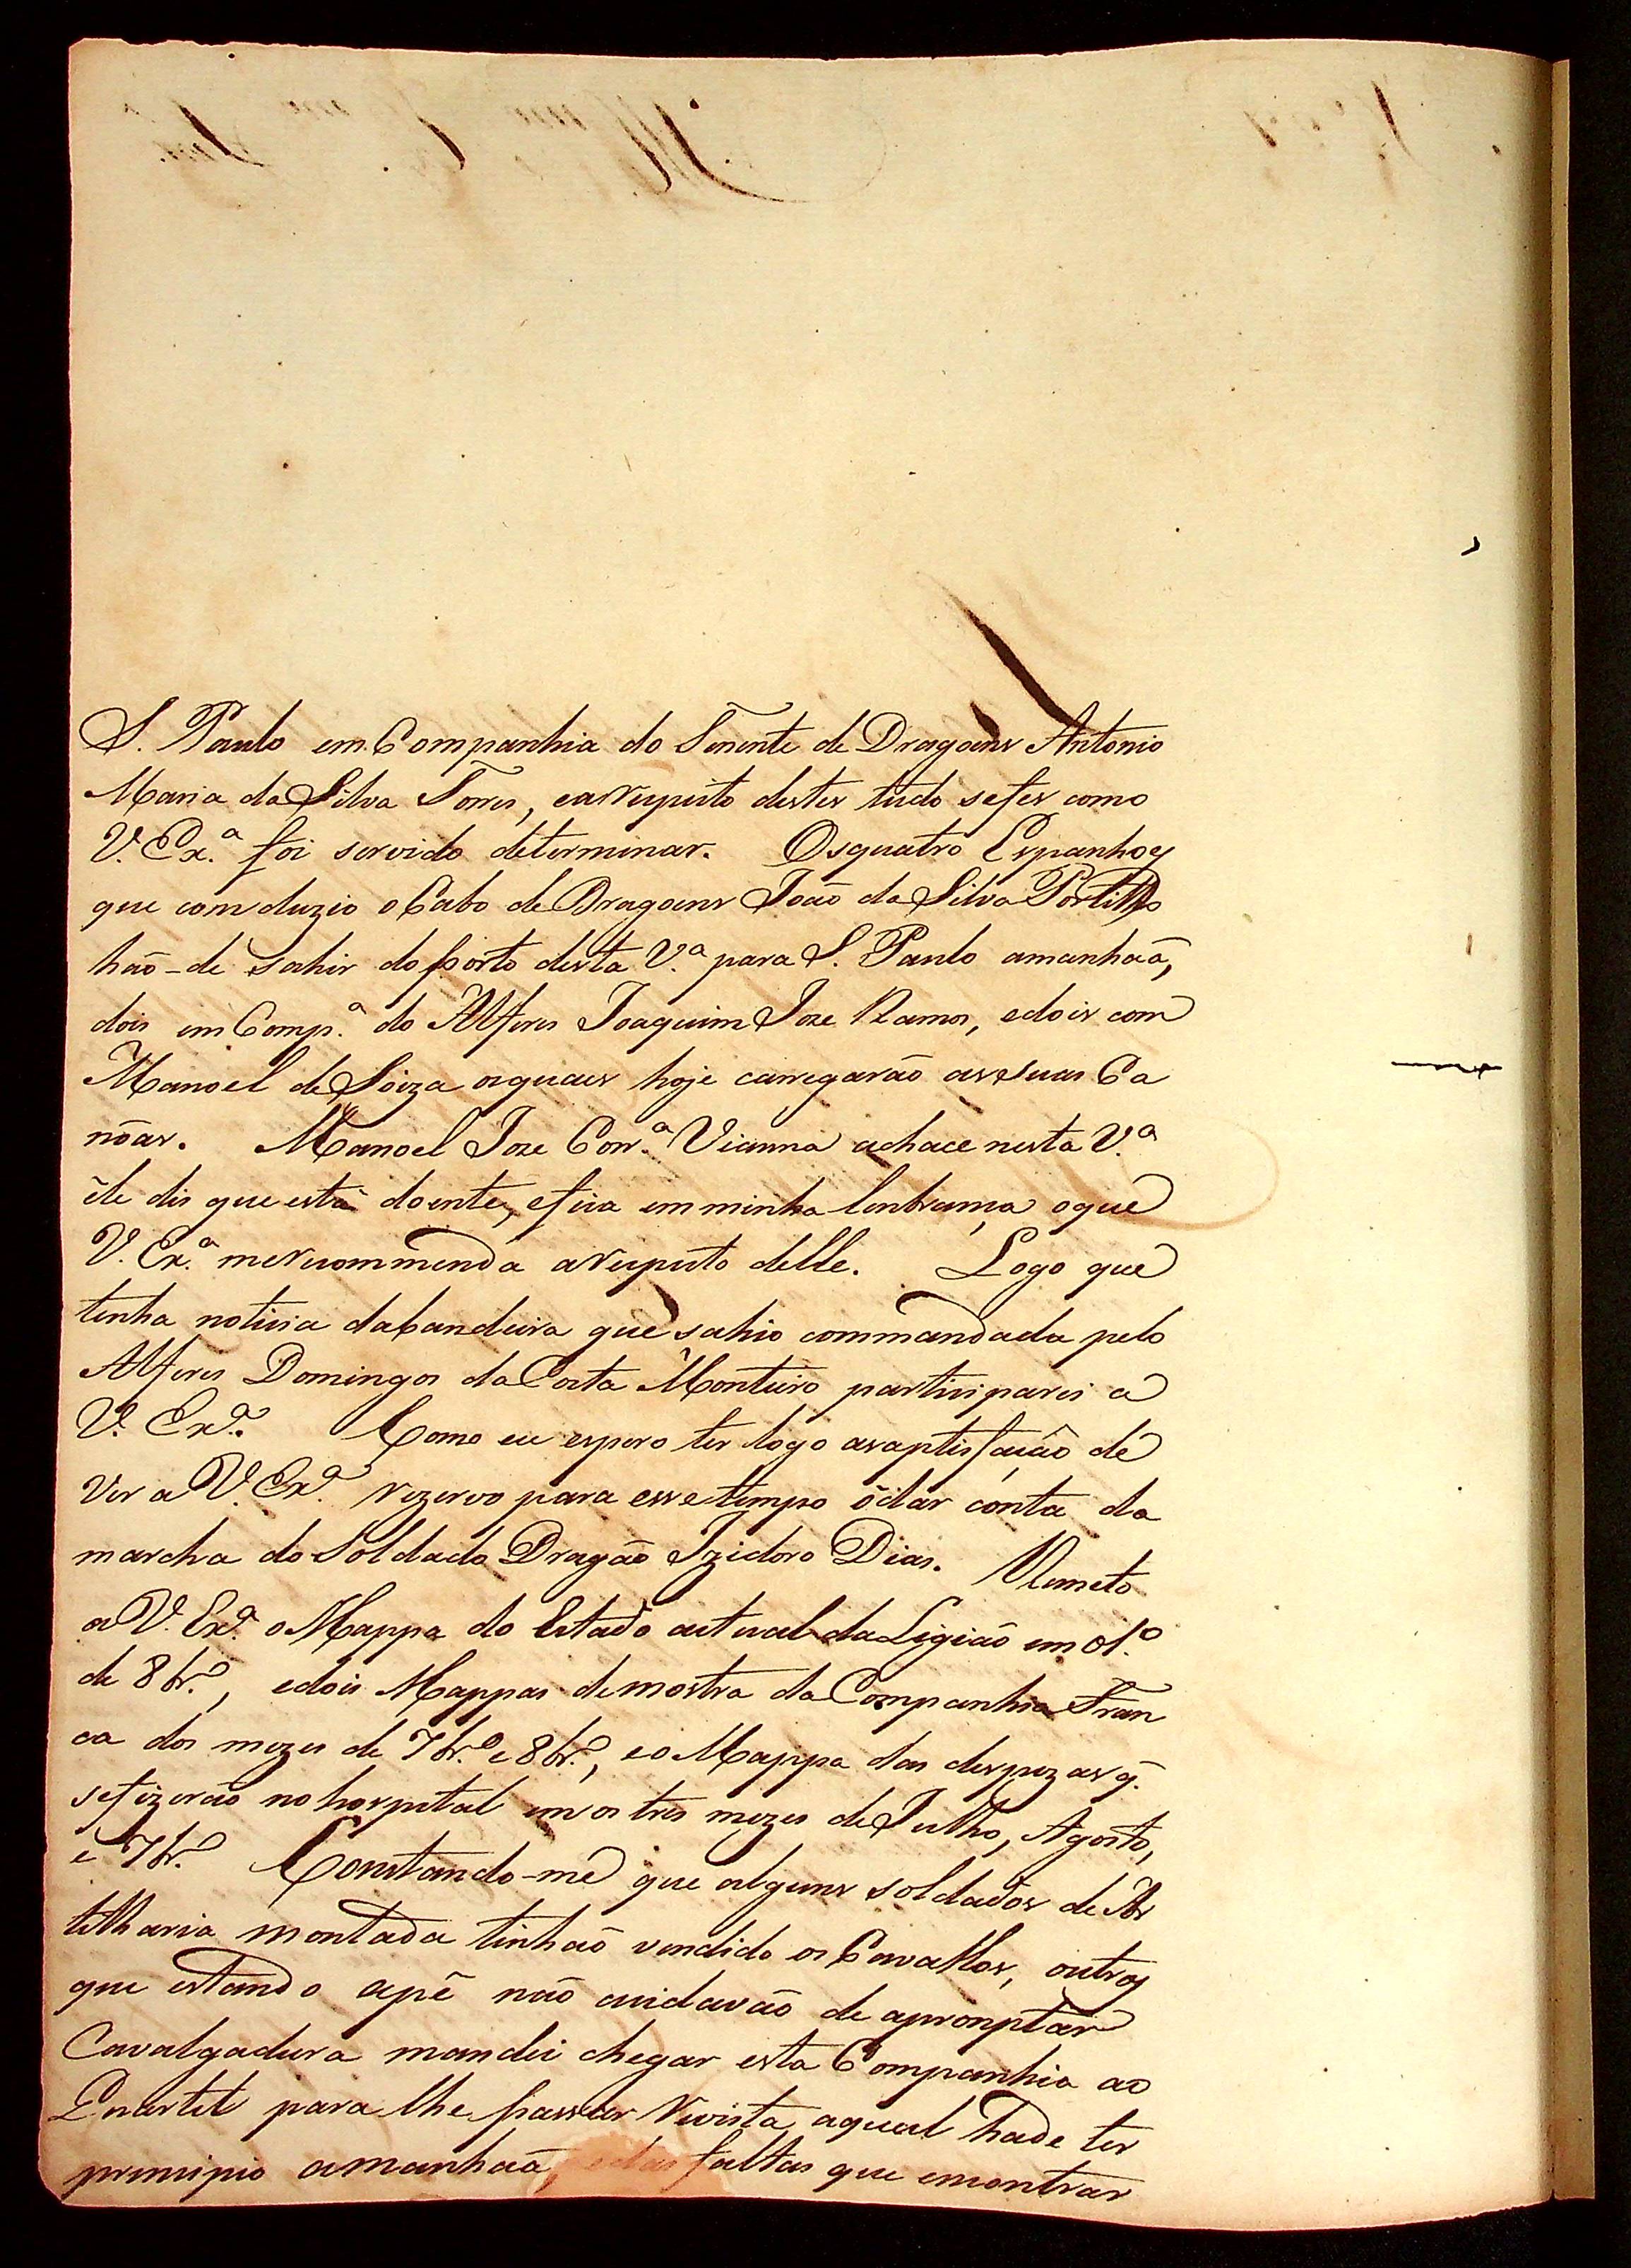 S. Paulo em Companhia do Tenente de Dragoens Antonio
Maria da Silva Torres, earespeito destes tudo sefes como
V. Ex.ª foi servido determinar. Osquatro Espanhoes
que comduzio o Cabo de Dragoens João da Silva Portilho
hão-de sahir do porto desta V.ª para S. Paulo amanhaã,
dois em Comp.ª do Alferes Joaquim Joze Ramos, edois com
Manoel de Soiza osquaes hoje carregarão assuas Ca
nôas. Manoel Joze Corr.ª Vianna achace nesta V.ª
êle dis que está doente, efica em minha lembrança oque
V. Ex.ª merecommenda arespeito delle. Logo que
tenha noticia dabandeira que sahio commandada pelo
Alferes Domingos da Costa Monteiro participarei a
V. Ex.ª. Como eu espero ter logo asaptisfação de
ver a V. Ex.ª rezervo para essetempo ôdar conta da
marcha do Soldado Dragão Izidoro Dias. Remeto
a V. Ex.ª o Mappa do Estado actual da Legião em 1.º
de 8br.º, edois Mappas demostra da Companhia Fran
ca dos mezes de 7br.º e 8br.º, eo Mappa das despezas q̃.
sefizerão no hospital em os tres mezes de Julho, Agosto,
e 7br.º Constando-me que alguns soldados de Ar
tilharia montada tinhão vendido os Cavallos, outros
que estando apê não cuidavão de apromptar
Cavalgadura mandei chegar esta Companhia ao
Quartel para lhe passar revista, aqual hade ter
principio amanhaã, edas faltas que encontrar